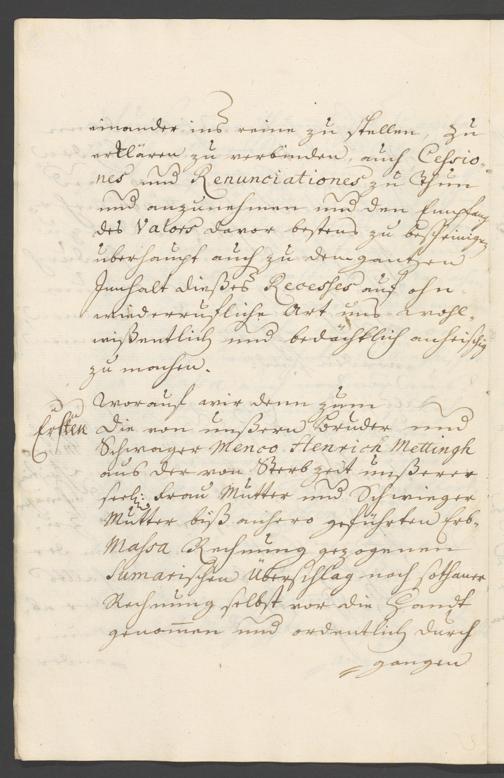 einander ins reine zu stellen, zu
erklären zu verbinden, auch Cessio-
nes und Renunciationes zu thun
und anzunehmen und den Empfang
des Valors davor bestens zu bescheinigen
überhaupt auch zu dem gantzen
Innhalt dießes Recesses auf ohn-
wiederrufliche Art uns wohl-
wißentlich und bedächtlich anheischig
zu machen.
Worauf wir denn zum
Ersten Die von unßerm Bruder und
Schwager Menco Henrich Mettingh
aus der von Sterbzeit unßerer
seel: Frau Mutter und Schwieger
Mutter biß anhero geführten Erb-
Massa Rechnung gezogenen
Sumarischen Überschlag nach sothaner
Rechnung selbst vor die Handt
genommen und ordentlich durch
gangen